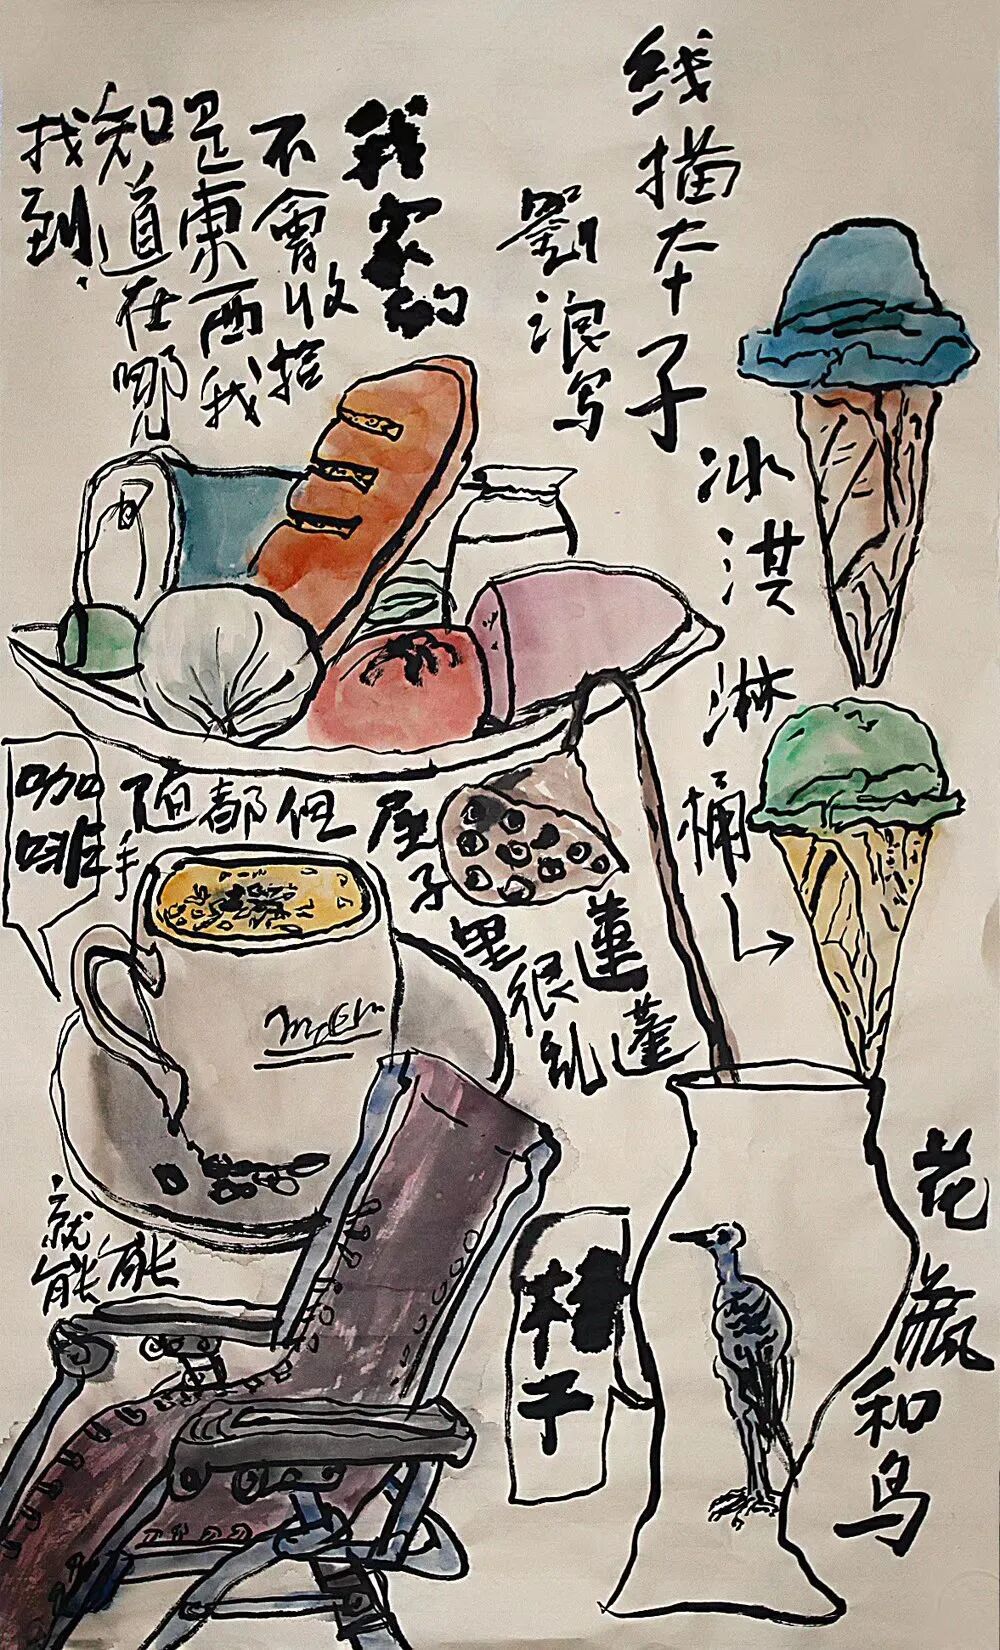 线描本子
劉浪写
我家的
不會收拾
是東西我
知道在哪
找到.
冰淇淋桶
屋子里很乱
但都随手
咖啡
蓮蓬
就能
能
椅子
花瓶和鸟